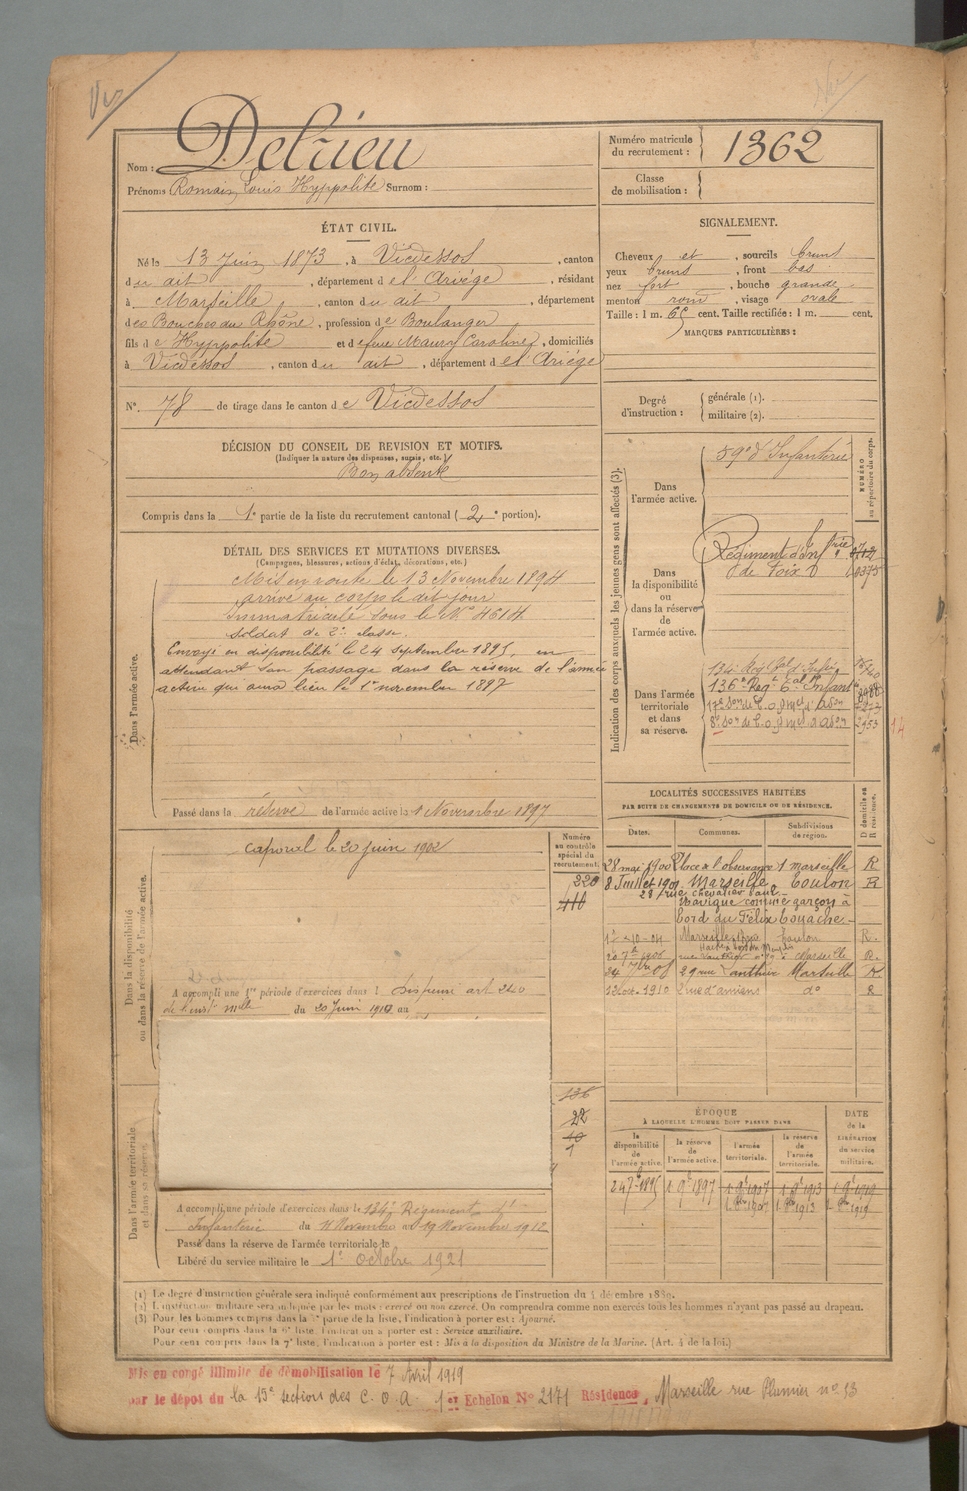 Nom : Delrieu
Prénoms Romain Louis Hyppolite Surnom :
Numéro matricule du recrutement : 1362
Classe de mobilisation :
ÉTAT CIVIL.
Né le 13 Juin 1873, à Vicdessos, canton
du dit, département de l'Ariége, résidant
à Marseille, canton du dit, département
des Bouches du Rhône, profession de Boulanger
fils de Hyppolite et de feue Maury Caroline, domiciliés
à Vicdessos, canton du dit, département de l'Ariége
N° 78 de tirage dans le canton de Vicdessos
SIGNALEMENT.
Cheveux et, sourcils bruns
yeux bruns, front bas
nez fort, bouche grande
menton rond, visage ovale
Taille : 1 m. cent. Taille rectifiée : 1 m. cent.
MARQUES PARTICULIÈRES :
Degré d'instruction : générale (1).
militaire (2).
DÉCISION DU CONSEIL DE REVISION ET MOTIFS.
(Indiquer la nature des dispenses, sursis, etc.)
Bon absent
Compris dans la 1e partie de la liste du recrutement cantonal (2e portion).
DÉTAIL DES SERVICES ET MUTATIONS DIVERSES.
(Campagnes, blessures, actions d'éclat, décorations, etc.)
Dans l'armée active.
Mis en route le 13 Novembre 1894
arrivé au corps le dit jour
Immatriculé sous le N° 4614
soldat de 2e classe.
Envoyé en disponibilité le 24 septembre 1895, en
attendant son passage dans la réserve de l'armée
active qui aura lieu le 1er novembre 1897
Passé dans la réserve de l'armée active le 1 Novembre 1897
Indication des corps auxquels les jeunes gens sont affectés (3).
NUMÉRO au répertoire du corps.
Dans l'armée active.
59e d'Infanterie
Dans la disponibilité ou dans la réserve de l'armée active.
Régiment d'Infrie
de Foix
Dans l'armée territoriale et dans sa réserve.
134e Regt tal d'Infie
136e Regt tal Infant
17e Son de C.o.a
8e Son de C.o.a
2953
14
Dans la disponibilité ou dans la réserve de l'armée active.
caporal le 20 juin 1902
Numéro au contrôle spécial du recrutement.
320
410
A accompli une 1re période d'exercices dans l Dispensé art 240
de l'inston mlle du 20 Juin 1910 au
LOCALITÉS SUCCESSIVES HABITÉES
PAR SUITE DE CHANGEMENTS DE DOMICILE OU DE RÉSIDENCE.
Dates. Communes. Subdivisions de région. D domicile ou R résidence.
28 mai 1900 Place de l'observance 1 marseille R
8 Juillet 1901 Marseille Toulon R
28 rue chevalier Paul
Navigue comme garçon à
bord du Félix Touache
Toulon R.
Marseille R.
29 rue Marseille R
12 oct. 1910 2 rue d'amiens do R
Dans l'armée territoriale et dans sa réserve.
136
22
10
1
A accompli une période d'exercices dans le 134e Régiment d'
Infanterie du 11 Novembre au 19 Novembre 1912
Passé dans la réserve de l'armée territoriale le
Libéré du service militaire le 1er octobre 1921
ÉPOQUE
À LAQUELLE L'HOMME DOIT PASSER DANS
DATE DE LA LIBÉRATION du service militaire.
la disponibilité de l'armée active. la réserve de l'armée active. l'armée territoriale. la réserve de l'armée territoriale.
24 7bre 1895 1 9bre 1897 1 9bre 1907 1 9bre 1913 1 9bre 1919
1 8bre 1907 1 8bre 1913 1 8bre 1919
(1) Le degré d'instruction générale sera indiqué conformément aux prescriptions de l'instruction du 4 décembre 1889.
(2) L'instruction militaire sera indiquée par les mots : exercé ou non exercé. On comprendra comme non exercés tous les hommes n'ayant pas passé au drapeau.
(3) Pour les hommes compris dans la 5e partie de la liste, l'indication à porter est : Ajourné.
Pour ceux compris dans la 6e liste, l'indication à porter est : Service auxiliaire.
Pour ceux compris dans la 7e liste, l'indication à porter est : Mis à la disposition du Ministre de la Marine. (Art. 4 de la loi.)
Mis en congé illimité de démobilisation le 7 Avril 1919
par le dépôt du la 15e section des C.O.A. 1er Echelon N° 2171 Résidence, Marseille rue Plumier n° 33